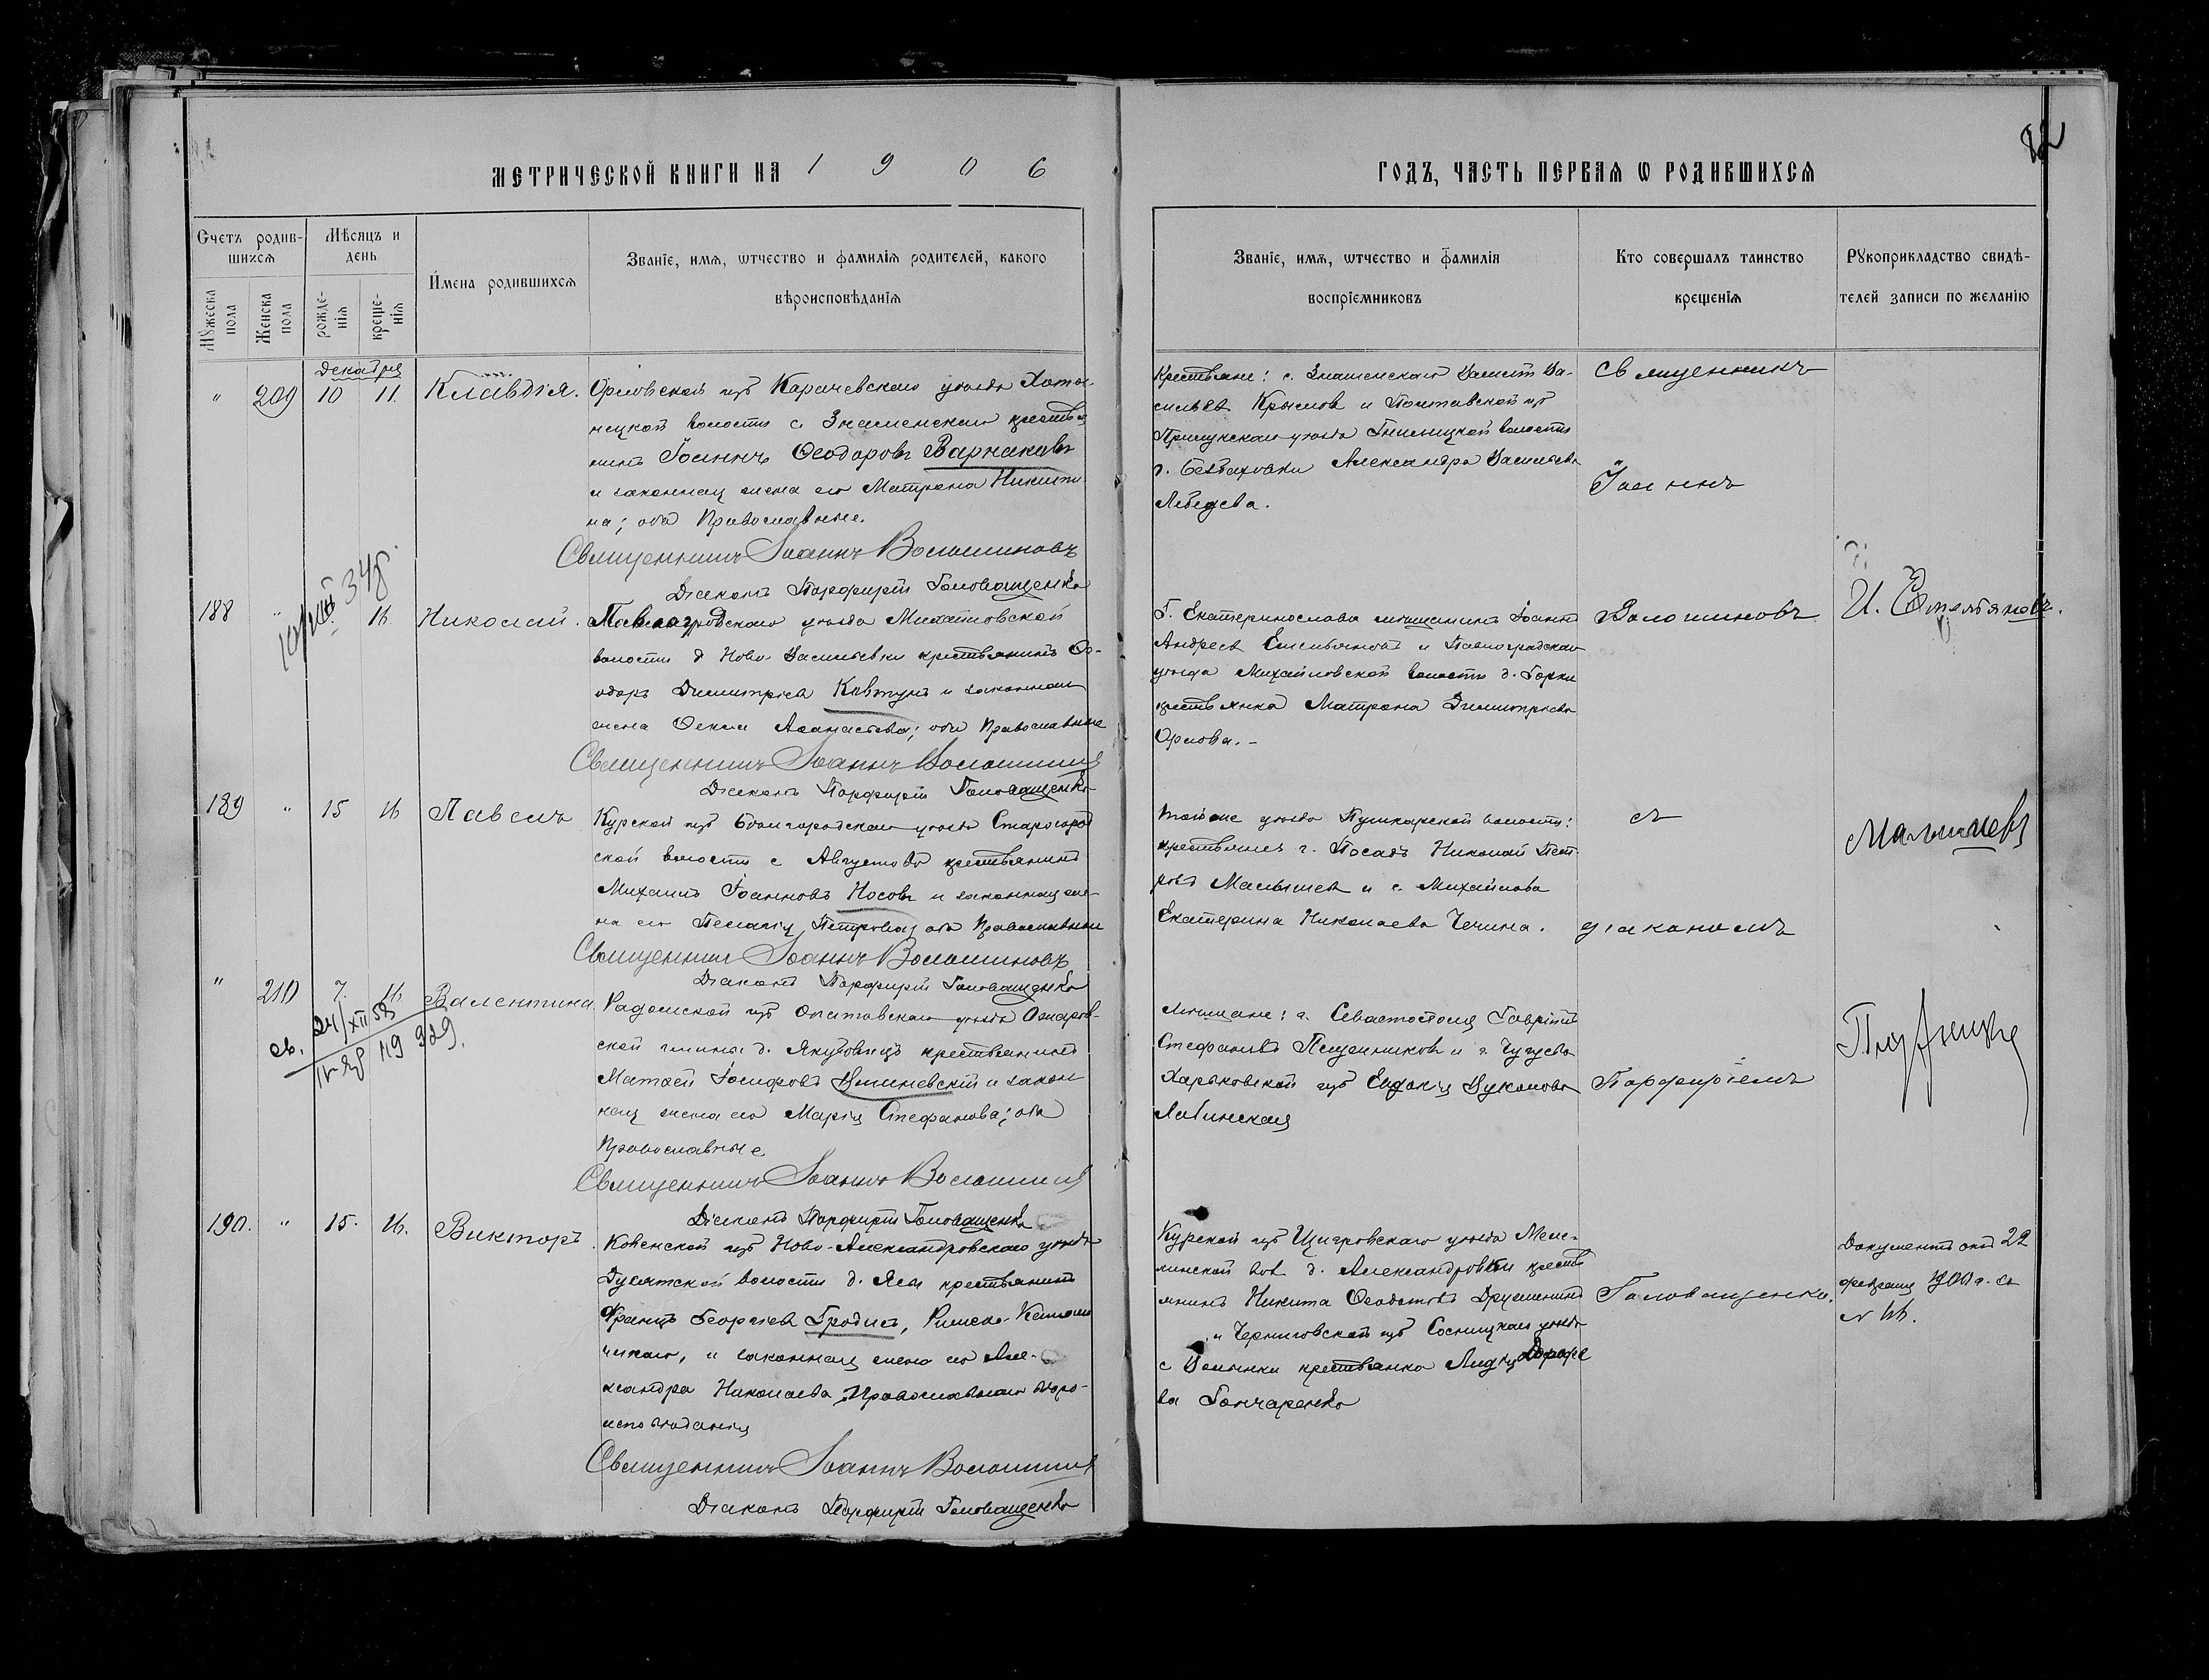 82
МЕТРИЧЕСКОЙ КНИГИ НА 1906
ГОДЪ, ЧАСТЬ ПЕРВАѦ Ѡ РОДИВШИХСѦ
Счетъ родив-
шихсѧ
Мѣсяцъ и
день
Имена родившихсѧ
Званіе, имѧ, ѡтчество и фамиліѧ родителей, какого
вѣроисповѣданіѧ
Мужеска
пола
Женска
пола
рожде-
ніѧ
креще-
ніѧ
Званіе, имѧ, ѡтчество и фамиліѧ
воспріемниковъ
Кто совершалъ таинство
крещеніѧ
Рукоприкладство свидѣ-
телей записи по желанію
Декабря
" 209 10 11. Клавдія.
Орловской губ Карачевскаго уѣзда Хоты-
нецкой волости с. Знаменскаго крестья
нинъ Іоаннъ Ѳеодоровъ Варнаковъ
и законная жена его Матрона Никити-
на; оба Православные.
Священникъ Іоаннъ Волошиновъ
Діаконъ Порфирій Головащенко
Крестьяне: с. Знаменскаго Ва-
сильевъ Крыловъ и Полтавской губ
Прилукскаго уѣзда волости
Александра Васильева
Лебедева.
Священникъ
Іоаннъ
348
188 " 16. Николай.
Павлоградскаго уѣзда Михайловской
волости д Ново-Васильевки крестьянинъ Ѳе-
одоръ Димитріевъ Ковтунъ и законная
жена Ѳекла Аѳанасьева; оба Православные
Священникъ Іоаннъ Волошиновъ
Діаконъ Порфирій Головащенко
Г. Екатеринослава мѣщанинъ Іоаннъ
Андреевъ Емельяновъ и Павлоградскаго
уѣзда Михайловской волости д. Горки
крестьянка Матрона Димитріева
Орлова. –
Волошиновъ
И. Емельяновъ.
189 " 15 16 Павелъ
Курской губ Бѣлгородскаго уѣзда Старогород
ской волости с Августово крестьянинъ
Михаилъ Іоанновъ Носовъ и законная же-
на его Пелагія Петрова, оба Православные
Священникъ Іоаннъ Волошиновъ
Діаконъ Порфирій Головащенко
Того же уѣзда Пушкарской волости:
крестьяне г. Посадъ Николай Пет-
ровъ Малышевъ и с. Михайлова
Екатерина Николаева Чечина.
съ
діакономъ
Малышевъ
" 210 7. 16. Валентина.
св. 24/XII 58
929.
Радомской губ Опатовскаго уѣзда Ожаров-
ской гмины д. Якубовицъ крестьянинъ
Матѳей Іосифовъ Вишневскій и закон
ная жена его Марія Стефанова; оба
Православные
Священникъ Іоаннъ Волошиновъ
Діаконъ Порфирій Головащенко
Мѣщане: г. Севастополя Гавріилъ
Стефановъ Пшеничниковъ и г. Чугуева
Харьковской губ Евдокія Лукьянова
Лабинская
Порфиріемъ
190. " 15. 16. Викторъ.
Ковенской губ Ново-Александровскаго уѣзда
Дусятской волости д. Ясы крестьянинъ
Францъ Георгіевъ Гродисъ, Римско-Католи
ческаго, и законная жена его Але-
ксандра Николаева, Православнаго вѣро-
исповѣданія
Священникъ Іоаннъ Волошиновъ
Діаконъ Порфирій Головащенко
Курской губ Щигровскаго уѣзда
вол д. Александровки кресть
янинъ Никита
и Черниговской губ Сосницкаго уѣзда
с Волынки крестьянка Лидія
ва Гончаренко
Головащенко.
Документъ отъ 22
февраля 1900 г. за
№ 46.